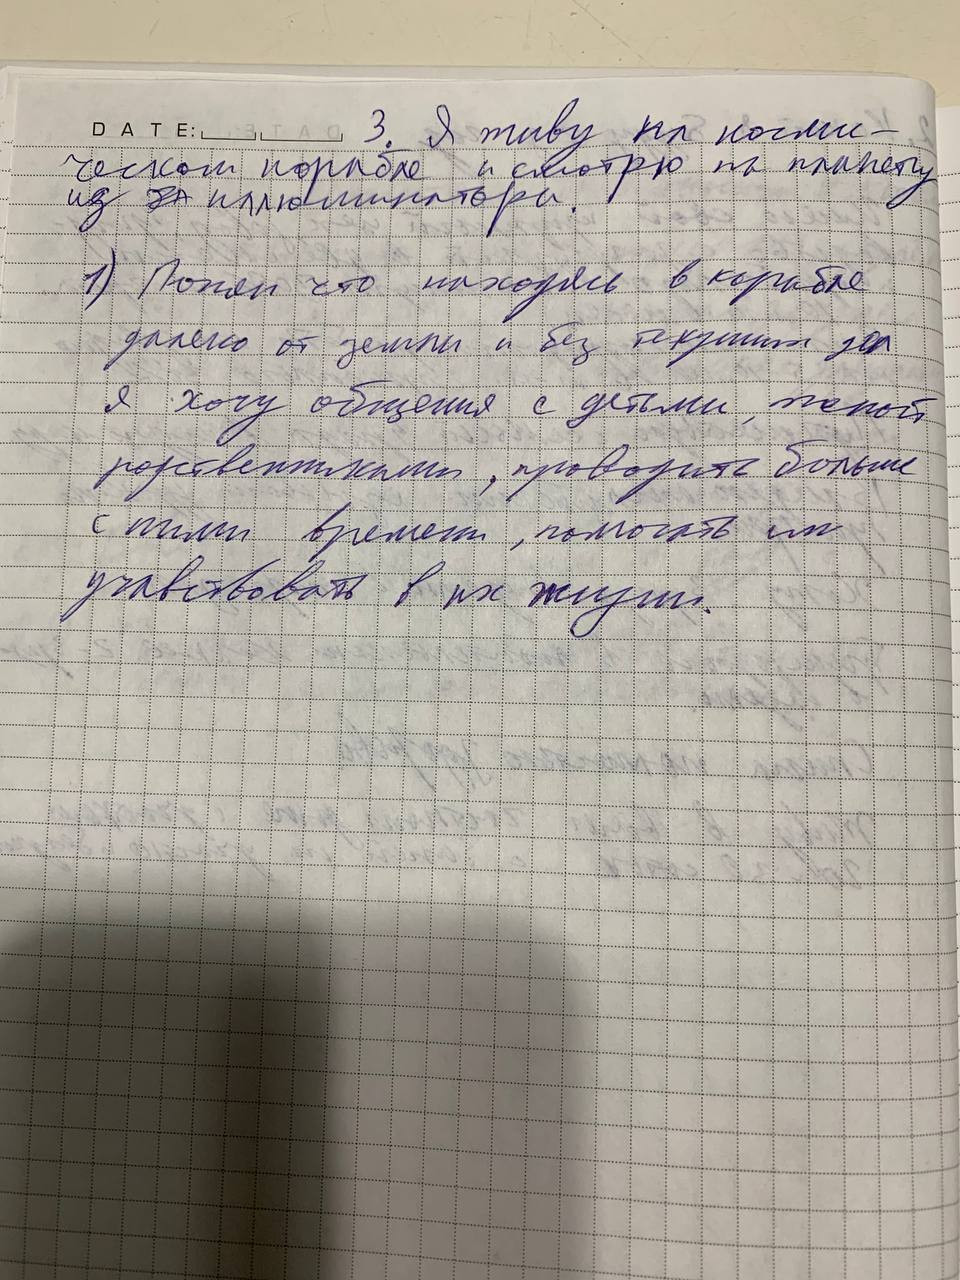 DATE: 3. Я живу на косми-
ческом корабле и смотрю на планету
из иллюминатора.
1) Понял что находясь в корабле
далеко от земли и без текущих дел
я хочу общения с детьми, женой
родственниками, проводить больше
с ними времени, помогать им
учавствовать в их жизни.